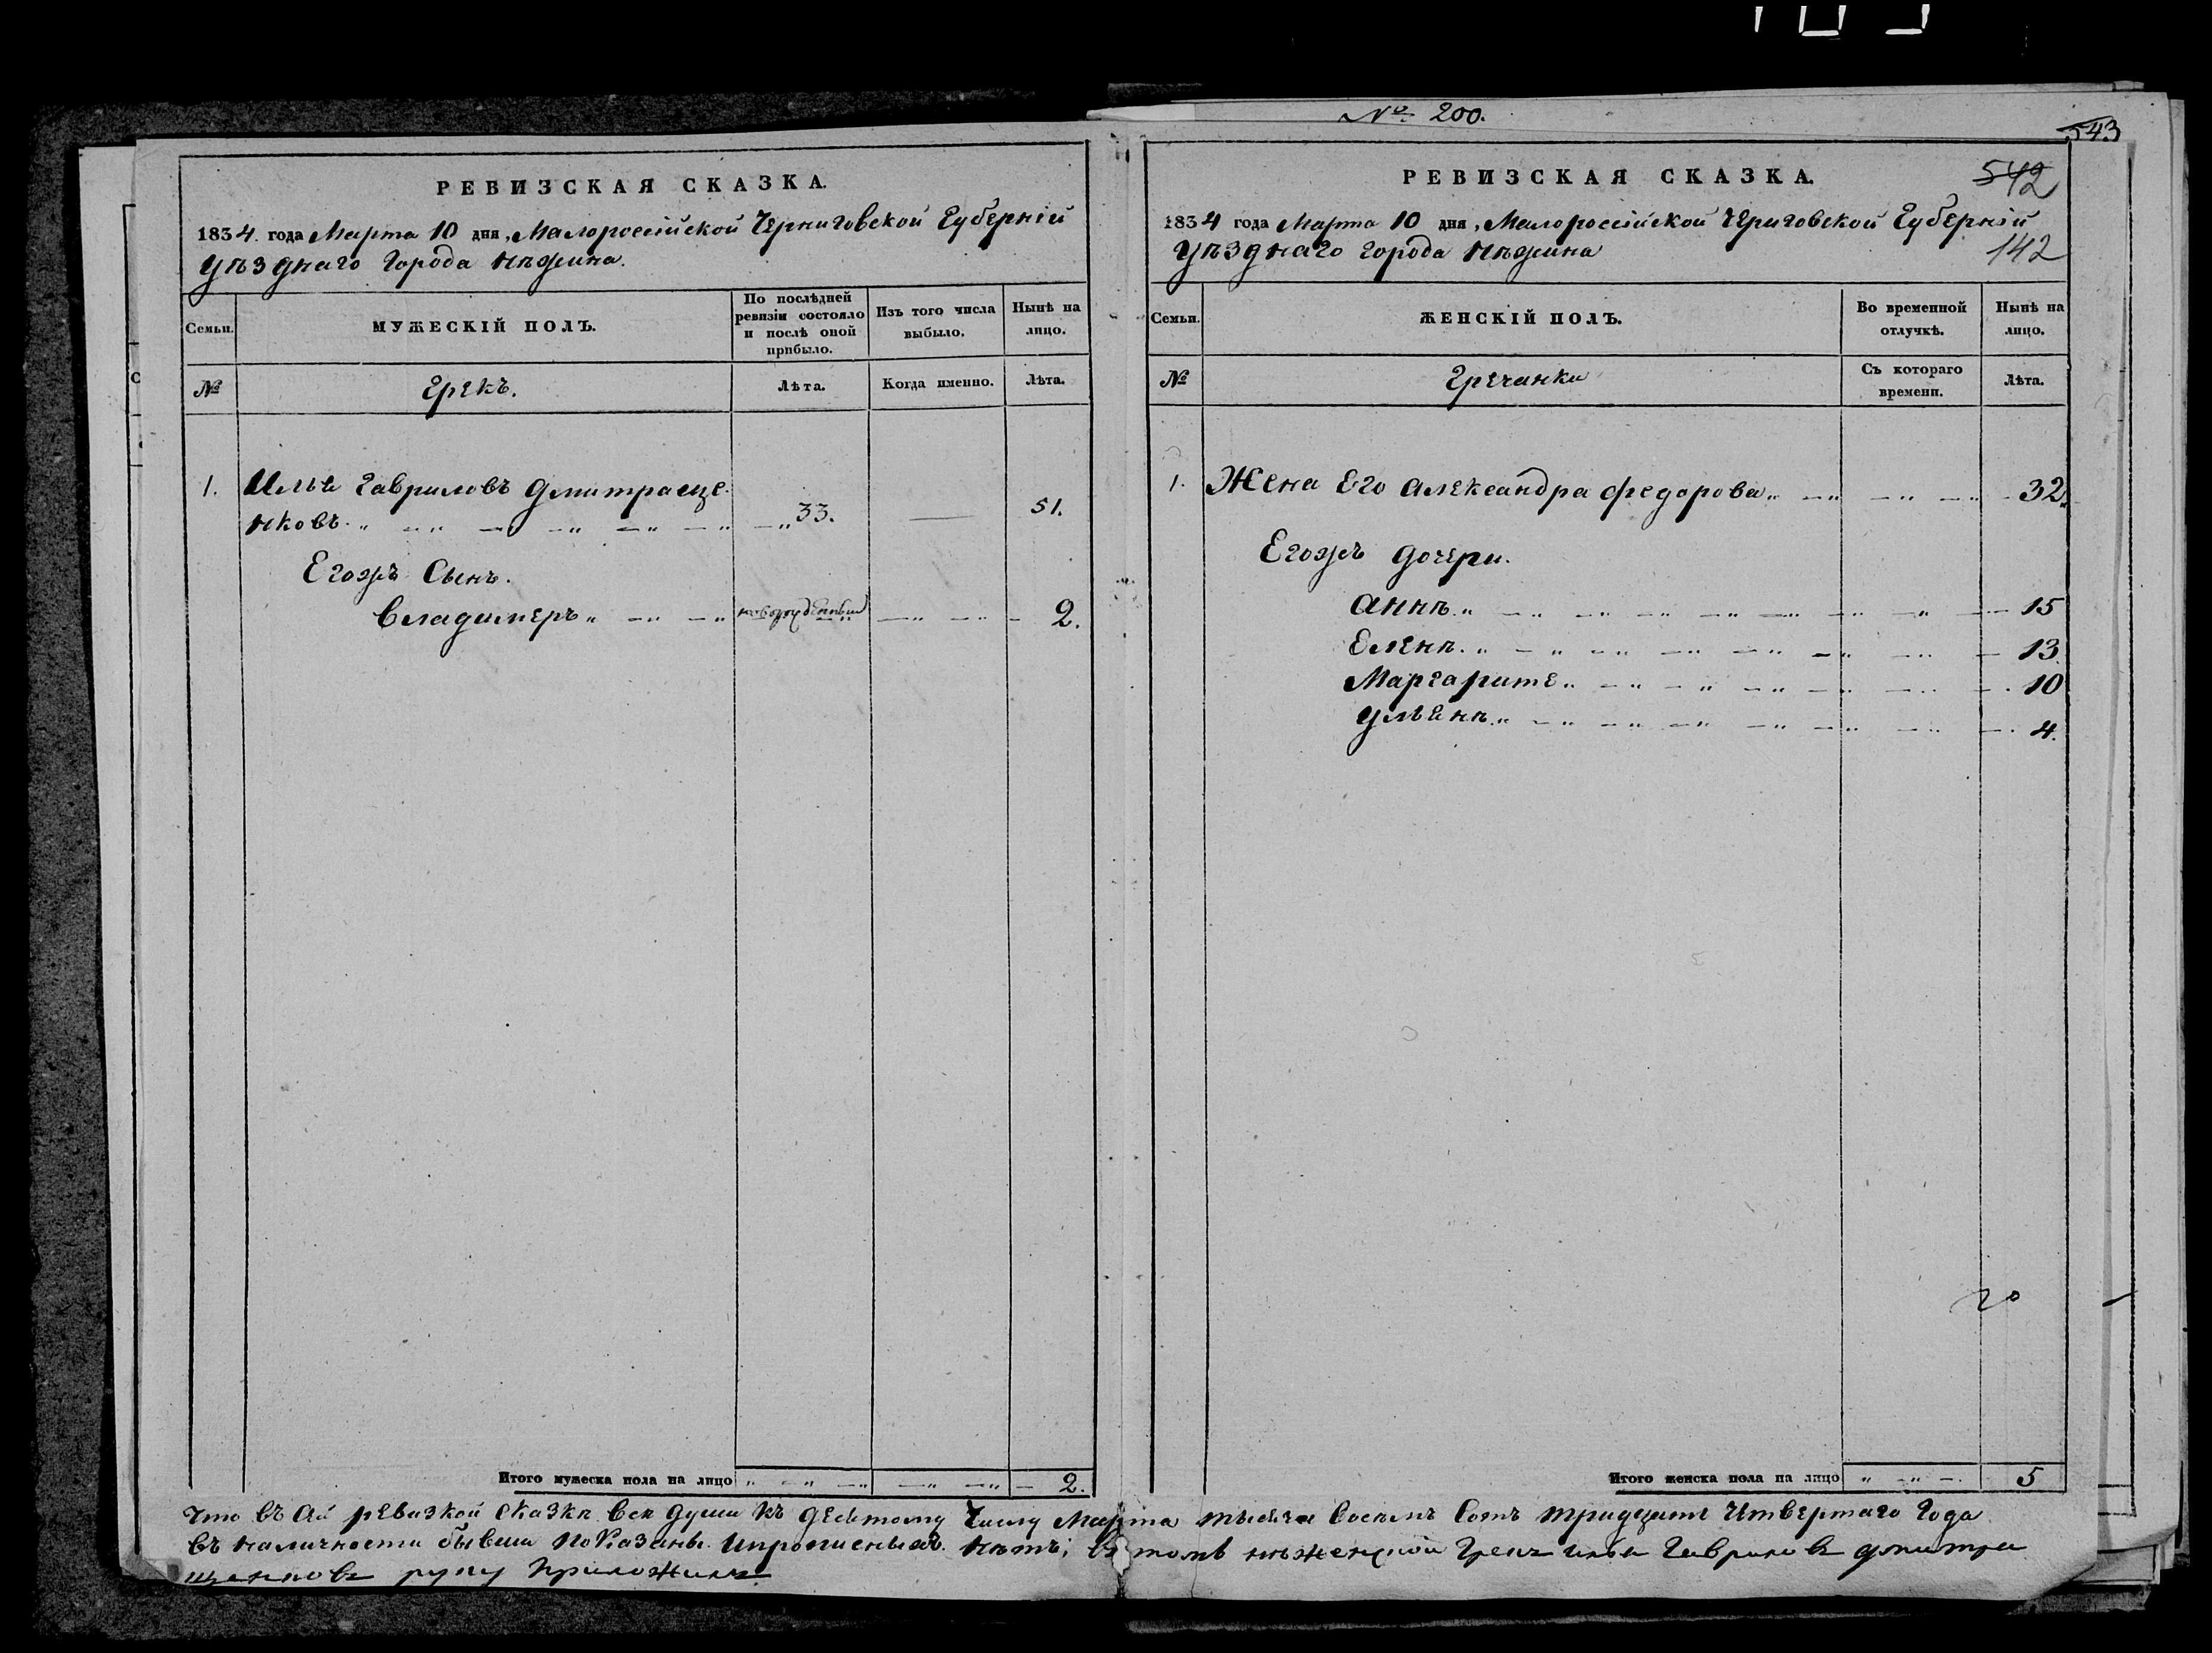 № 200.
543
РЕВИЗСКАЯ СКАЗКА.
1834. года Марта 10 дня, Малороссійской Черниговской Губерніи
уѣзднаго города Нѣжина.
Семьи.
МУЖЕСКІЙ ПОЛЪ.
По послѣдней ревизіи состояло и послѣ оной прибыло.
Изъ того числа выбыло.
Нынѣ на лицо.
№
Грекъ.
Лѣта.
Когда именно.
Лѣта.
1. Илья Гавриловъ Дмитраще-
нковъ 33. 51.
Егожъ Сынъ.
Владимеръ новорожденный 2.
Итого мужеска пола на лицо 2.
РЕВИЗСКАЯ СКАЗКА.
542
1834 года Марта 10 дня, Малороссійской Чериговской Губерніи
142
уѣзднаго города Нѣжина
Семьи.
ЖЕНСКІЙ ПОЛЪ.
Во временной отлучкѣ.
Нынѣ на лицо.
№
Гречанки
Съ котораго времени.
Лѣта.
1. Жена Его Александра Федорова 32
Егожъ дочери.
Аннѣ 15
Еленѣ 13
Маргарите 10
Ульянѣ 4.
20
Итого женска пола на лицо 5
Что въ ревизкой сказкѣ все души къ десятому Числу Марта тысяча Восемь Сотъ тридцать Четвертаго Года
въ наличности бывши показаны. и прописныхъ нѣтъ; въ томъ нѣженской Грекъ илья Гавриловъ дмитра
щенковъ руку приложилъ